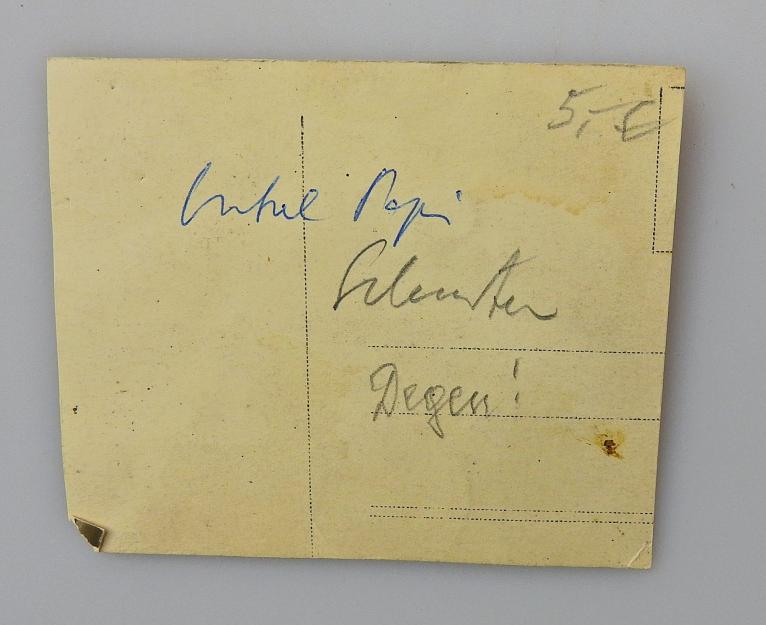 5,- €
Onkel Papi
Degen!